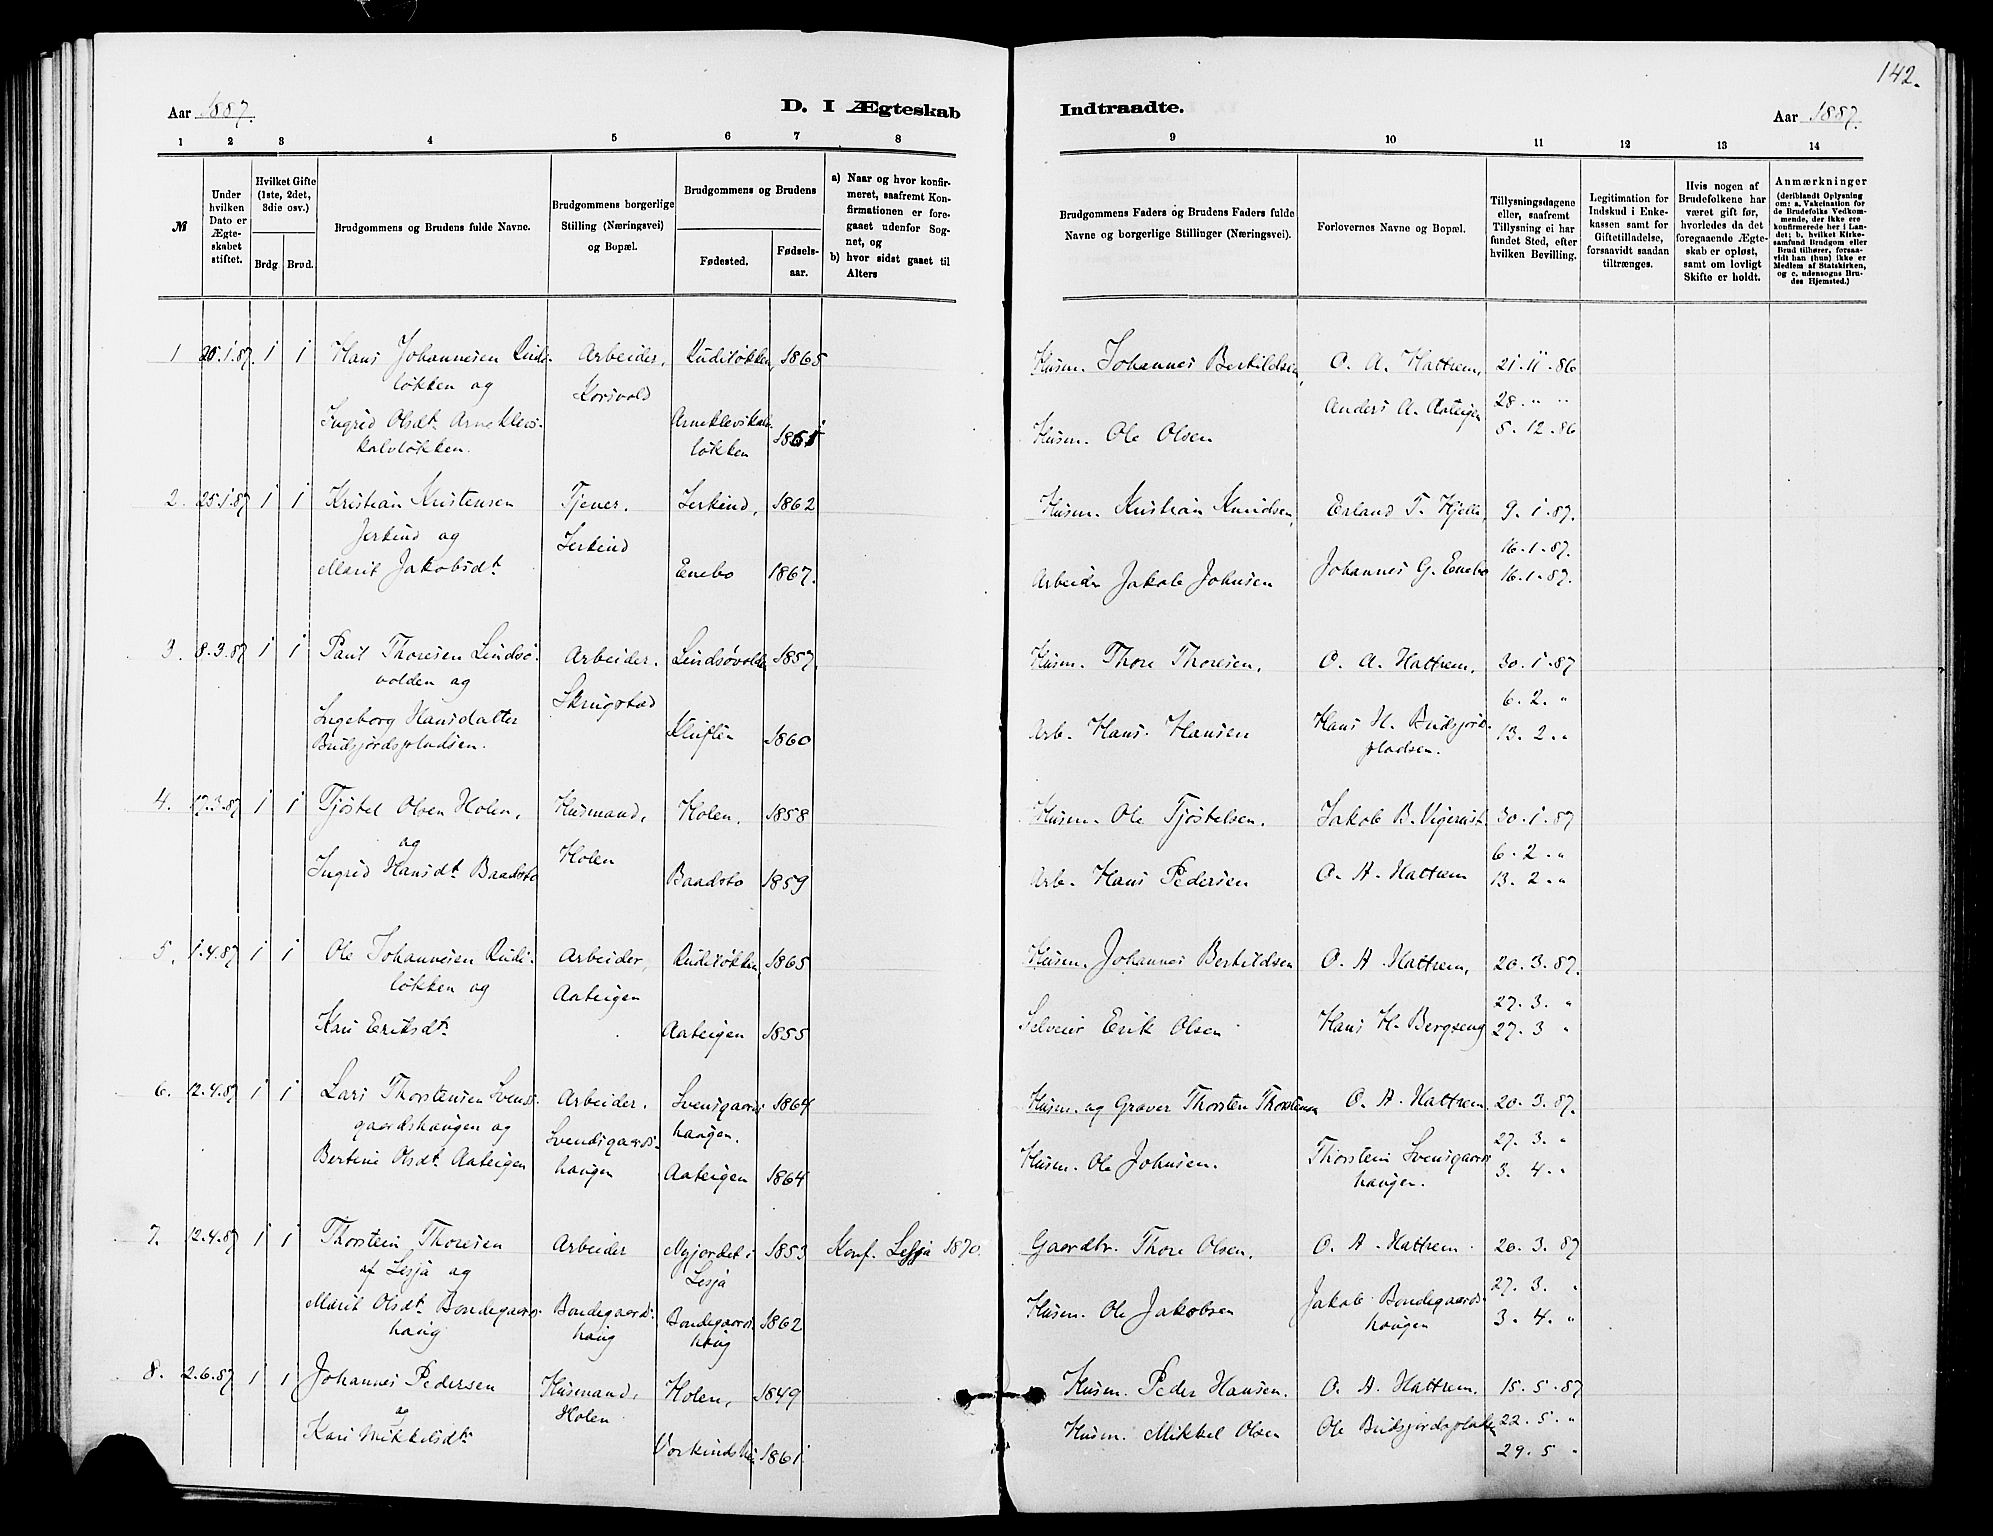 142.
Aar 1887.
D. I Ægteskab
Indtraadte.
Aar 1887.
1 2 3 4 5 6 7 8
9 10 11 12 13 14
№
Under hvilken Dato er Ægteskabet stiftet.
Hvilket Gifte (1ste, 2det, 3die osv.)
Brdg. Brud.
Brudgommens og Brudens fulde Navne.
Brudgommens borgerlige Stilling (Næringsvei) og Bopæl.
Brudgommens og Brudens
Fødested.
Fødselsaar.
a) Naar og hvor konfirmeret, saafremt Konfirmationen er foregaaet udenfor Sognet, og
b) hvor sidst gaaet til Alters
Brudgommens Faders og Brudens Faders fulde Navne og borgerlige Stillinger (Næringsvei).
Forlovernes Navne og Bopæl.
Tillysningsdagene eller, saafremt Tillysning ei har fundet Sted, efter hvilken Bevilling.
Legitimation for Indskud i Enkekassen samt for Giftetilladelse, forsaavidt saadan tiltrænges.
Hvis nogen af Brudefolkene har været gift før, hvorledes da det foregaaende Ægteskab er opløst, samt om lovligt Skifte er holdt.
Anmærkninger (deriblandt Oplysning om: a. Vakcination for de Brudefolks Vedkommende, der ikke ere konfirmerede her i Landet; b. hvilket Kirkesamfund Brudgom eller Brud tilhører, forsaavidt han (hun) ikke er Medlem af Statskirken, og c. udensogns Brudes Hjemsted.)
1 1 1 Hans Johannesen Ruds- Arbeider, Rudsløkken, 1865 Husm. Johannes Bertildsen, O. A. Hattrem, 21. 11. 86
løkken og Korsvold 28. " "
Ingrid Olsdt. Arneklevs- Husm. Ole Olsen Anders A. Aateigen 5. 12. 86
kalvløkken. løkken
2. 25.1.87 1 1 Kristian Kristensen Tjener, Jerkind, 1862 Husm. Kristian Knudsen, Erland T. Hjelle, 9. 1. 87.
Jerkind og Jerkind 16. 1. 87.
Marit Jakobsdt. Enebo 1867. Arbeider Jakob Johnsen Johannes G. Enebo 16. 1. 87.
3. 8.3.87 1 1 Paul Thoresen Lindsø- Arbeider. Lindsøvolden 1857. Husm. Thore Thoresen, O. A. Hattrem, 30. 1. 87
volden og Skrugstad 6. 2. "
Ingeborg Hansdatter Kluften 1860 Arb. Hans Hansen Hans H. Budsjords- 13. 2. "
Budsjordspladsen. pladsen.
4. 17.3.87 1 1 Tjøstel Olsen Holen, Husmand, Holen, 1858 Husm. Ole Tjøstelsen. Jakob B. Vigerust 30. 1. 87
og Holen 6. 2. "
Ingrid Hansdt. Baadsto Baadsto 1859 Arb. Hans Pedersen O. A. Hattrem 13. 2. "
5. 1.4.87 1 1 Ole Johannesen Ruds- Arbeider, Rudsløkken, 1865 Husm. Johannes Bertildsen O. A. Hattrem, 20. 3. 87.
løkken og Aateigen 27. 3. "
Kari Eriksdt. Aateigen 1855 Selveier Erik Olsen Hans H. Bergseng 27. 3 "
6. 12.4.87 1 1 Lars Thorstensen Svens- Arbeider. Svensgaards- 1864 Husm. og Graver Thorsten Thorstensen O. A. Hattrem 20. 3. 87.
gaardshaugen og Svendsgaards- haugen. 27. 3. "
Bertine Olsdt. Aateigen haugen Aateigen 1864 Husm. Ole Johnsen. Thorstein Svensgaards- 3. 4. "
haugen.
7. 12.4.87 1 1 Thorstein Thoresen Arbeider Nyjordet i 1853 Konf. Lesja 1870. Gaardbr. Thore Olsen, O. A. Hattrem. 20. 3. 87
af Lesja og Lesja 27. 3. "
Marit Olsdt. Bondegaards- Bondegaards- Bondegaards- 1862 Husm. Ole Jakobsen Jakob Bondegaards- 3. 4. "
haug haug haug haugen
8. 2.6.87 1 1 Johannes Pedersen Husmand, Holen, 1849 Husm. Peder Hansen. O. A. Hattrem. 15. 5. 87
og Holen 22. 5. "
Kari Mikkelsdt. 1861 Husm. Mikkel Olsen Ole Budsjordspladsen 29. 5 "